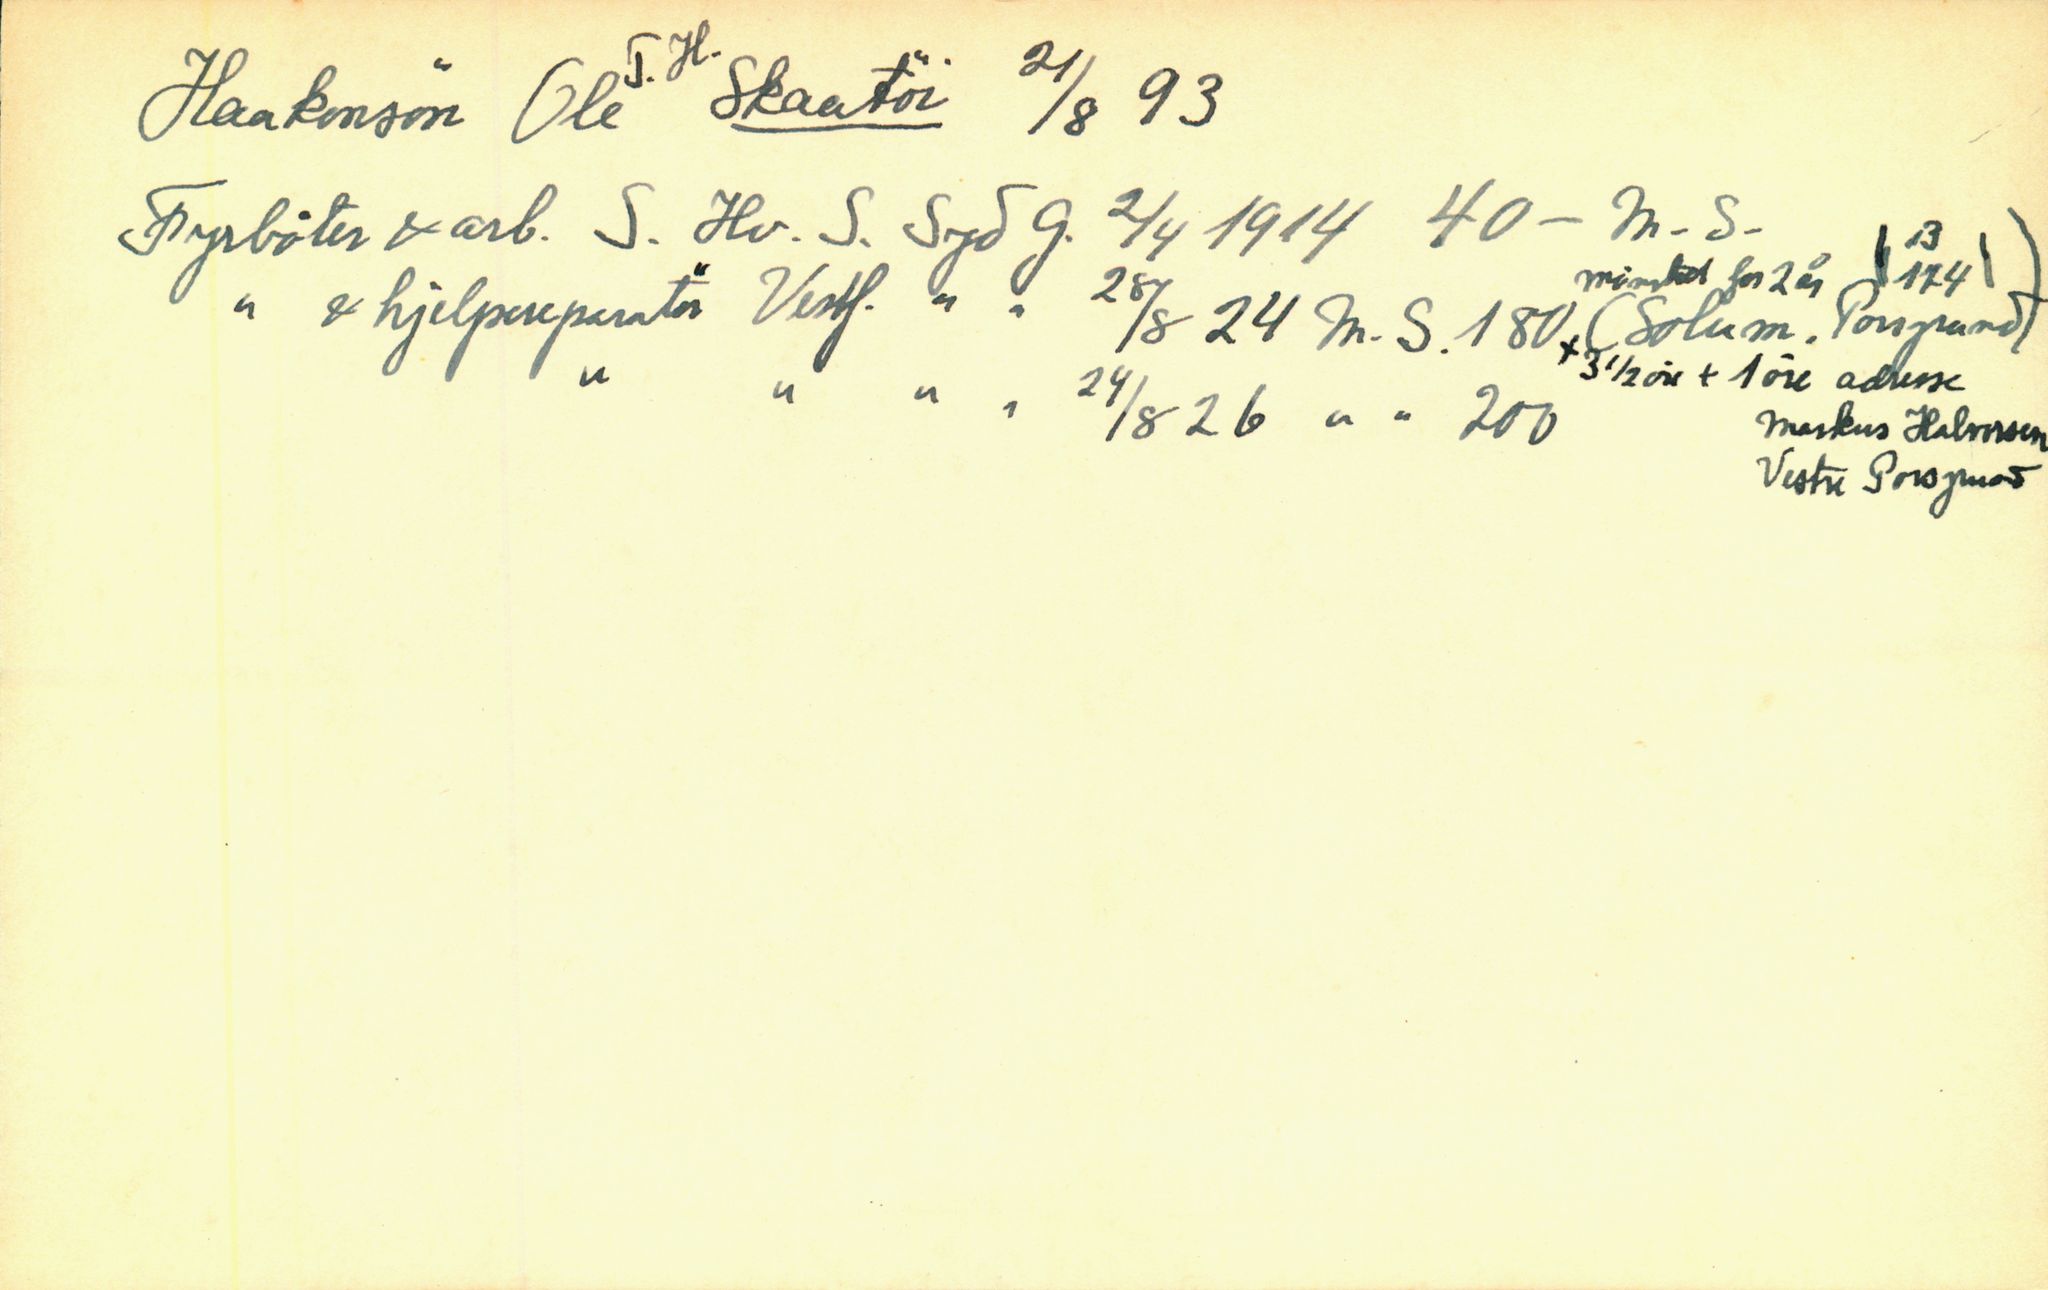 Haakonsön Ole T. H. Skaatöi 21/8 93
Fyrböter & arb. S. Hv. S. Syd G. 2/4 1914 40 – M. S.
" & hjelpereparatör Vestf. " " 28/8 24 M. S. 180 (Solum. Porsgrund)
mönstret for 2 år 13
174
+ 3 1/2 öre + 1 öre adresse
" " " " 24/8 26 " " 200
Markus Halvorsen
Vestre Porsgrund